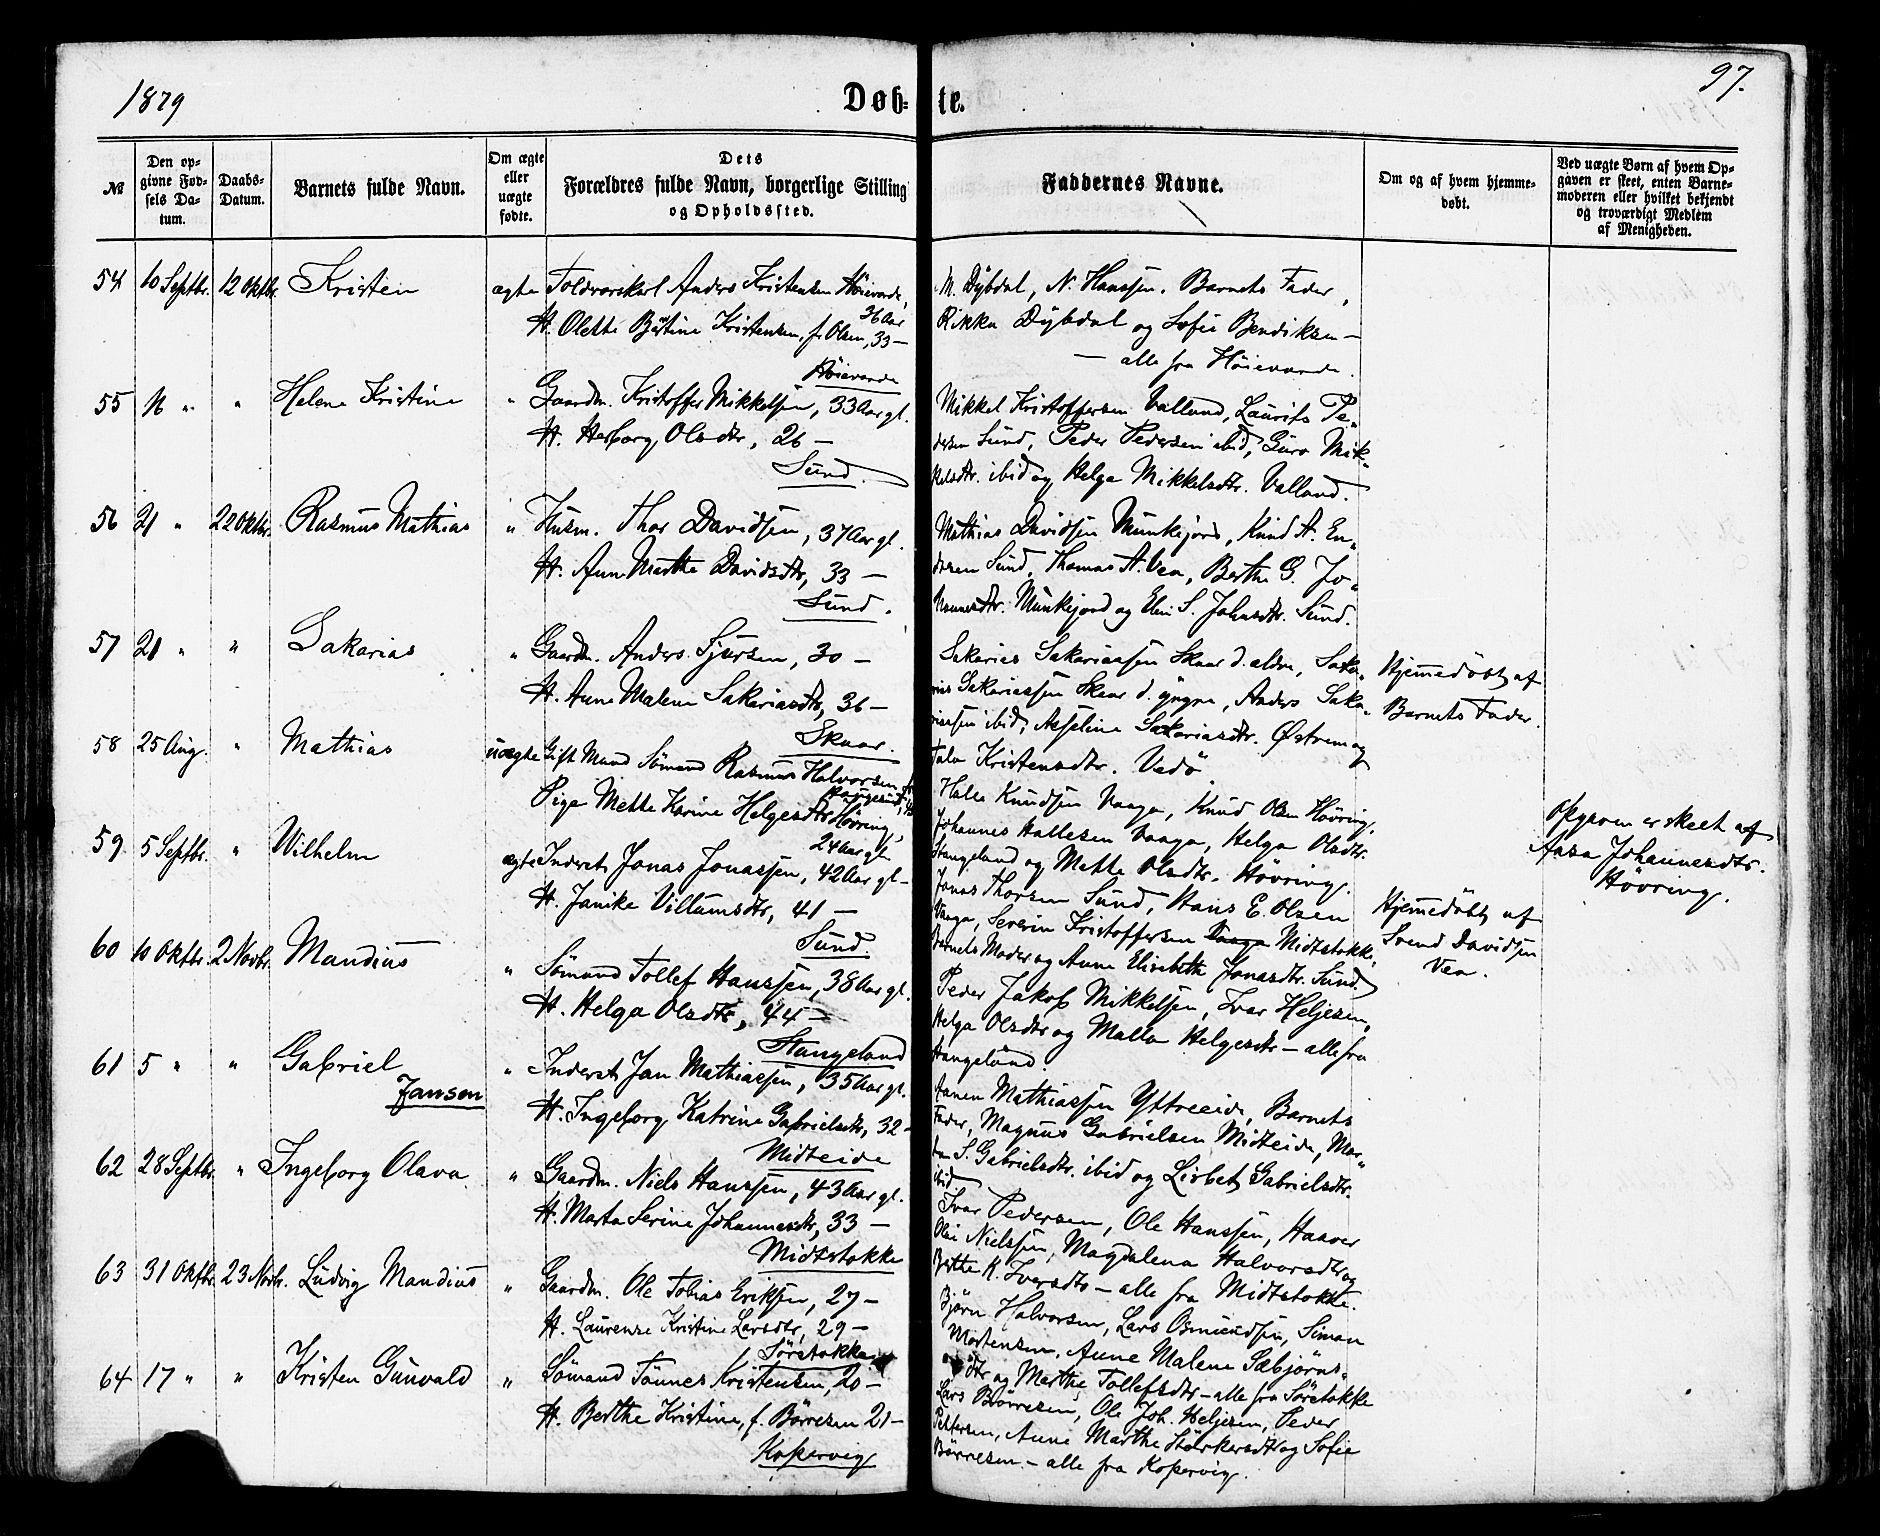 1879
Døb-
te.
97.
№
Den op-
givne Fød-
sels Da-
tum.
Daabs-
Datum.
Barnets fulde Navn.
Om ægte
eller
uægte
fødte.
Dets
Forældres fulde Navn, borgerlige Stilling
og Opholdssted.
Faddernes Navne.
Om og af hvem hjemme-
døbt.
Ved uægte Børn af hvem Op-
gaven er skeet, enten Barne-
moderen eller hvilket bekjendt
og troværdigt Medlem
af Menigheden.
54 10 Septbr. 12 Oktbr. Kristen ægte Toldvorskarl Anders Kristensen Høievarde,
36 Aar
H. Olette Bertine Kristensen, f. Olsen, 33 —
Høievarde
M. Dybdal, N. Hanssen, Barnets Fader,
Rikka Dybdal og Sofie Bendiksen —
— alle fra Høievarde.
55 " " Helene Kristine " Gaardm. Kristoffer Mikkelsen, 33 Aar gl.
H. Herborg Olsdtr, 26 —
Sund.
Mikkel Kristoffersen Valland, Laurits Pe-
dersen Sund, Peder Pedersen ibid, Guro Mik-
kelsdtr. ibid og Helga Mikkelsdtr. Valland.
56 21 " 22 Oktbr. Rasmus Mathias " Husm. Thor Davidsen, 37 Aar gl.
H. Anne Marthe Davidsdtr, 33 —
Sund.
Mathias Davidsen Munkejord, Knud A. En-
dresen Sund, Thomas A. Vea, Berthe G. Jo-
hannesdtr. Munkejord og Elen S. Johnsdtr. Sund.
57 21 " " Sakarias " Gaardm. Anders Sjursen, 30 —
H. Anne Malene Sakariasdtr, 36 —
Skaar.
Sakarias Sakariassen Skaar d. ældre, Saka-
rias Sakariassen Skaar d. yngre, Anders Saka-
riassen ibid, Asseline Sakariasdtr. Østrem og
Kristensdtr. Vedø
Hjemmedøbt af
Barnets Fader.
58 25 Aug. " Mathias uægte Gift Mand Sømand Rasmus Halvorsen
Haugesund,
Pige Mette Karine Helgesdtr Høvring,
24 Aar gl.
Halle Knudsen Vaaga, Knud Olsen Høvring,
Johannes Hallesen Vaaga, Helga Olsdtr.
Stangeland og Mette Olsdtr. Høvring.
Opgaven er skeet af
Aasa Johannesdtr.
Høvring.
59 5 Septbr. " Wilhelm ægte Inderst Jonas Jonassen, 42 Aar gl —
H. Janike Villumsdtr, 41 —
Sund.
Jonas Thorsen Sund, Hans E. Olsen
Vaaga, Severin Kristoffersen Vaaga Midtstokke,
Barnets Moder og Anne Elisabeth Jonasdtr. Sund.
Hjemmedøbt af
Svend Davidsen
Vea.
60 10 Oktbr. 2 Novbr. Mandius " Sømand Tollef Hanssen, 38 Aar gl.
H. Helga Olsdtr, 44 —
Stangeland
Peder Jakob Mikkelsen, Ivar Heljesen,
Helga Olsdtr og Malla Helgesdtr — alle fra
Stangeland.
61 5 " " Gabriel
Jansen
" Inderst Jan Mathiassen, 35 Aar gl.
H. Ingeborg Katrine Gabrielsdtr, 32 —
Midteide
Mathiassen Yttreeide, Barnets
Fader, Magnus Gabrielsen Midteide, Mar-
S. Gabrielsdtr. ibid og Lisbet Gabrielsdtr.
ibid
62 28 Septbr. " Ingeborg Olava " Gaardm. Niels Hanssen, 43 Aar gl.
H. Marta Serine Johannesdtr, 33 —
Midtstokke
Ivar Pedersen, Ole Hanssen, Haaver
Nielssen, Magdalena Halvorsdtr og
Berthe K. Iversdtr — alle fra Midtstokke.
63 31 Oktbr. 23 Novbr. Ludvig Mandius " Gaardm. Ole Tobias Eriksen, 27 —
H. Laurense Kristine Larsdtr, 29 —
Sørstokke
Bjørn Halvorsen, Lars Osmundsen, Simon
Mortensen, Anne Malene Sæbjørns-
dtr og Marthe Tollefsdtr — alle fra Sørstokke
64 17 " " Kristen Gunvald " Sømand Tønnes Kristensen, 20 —
H. Berthe Kristine, f. Børresen 21 —
Kopervig
Lars Børresen, Ole Joh. Heljesen, Peder
Pettersen, Anne Marthe Størkersdtr og Sofie
Børresen — alle fra Kopervig.